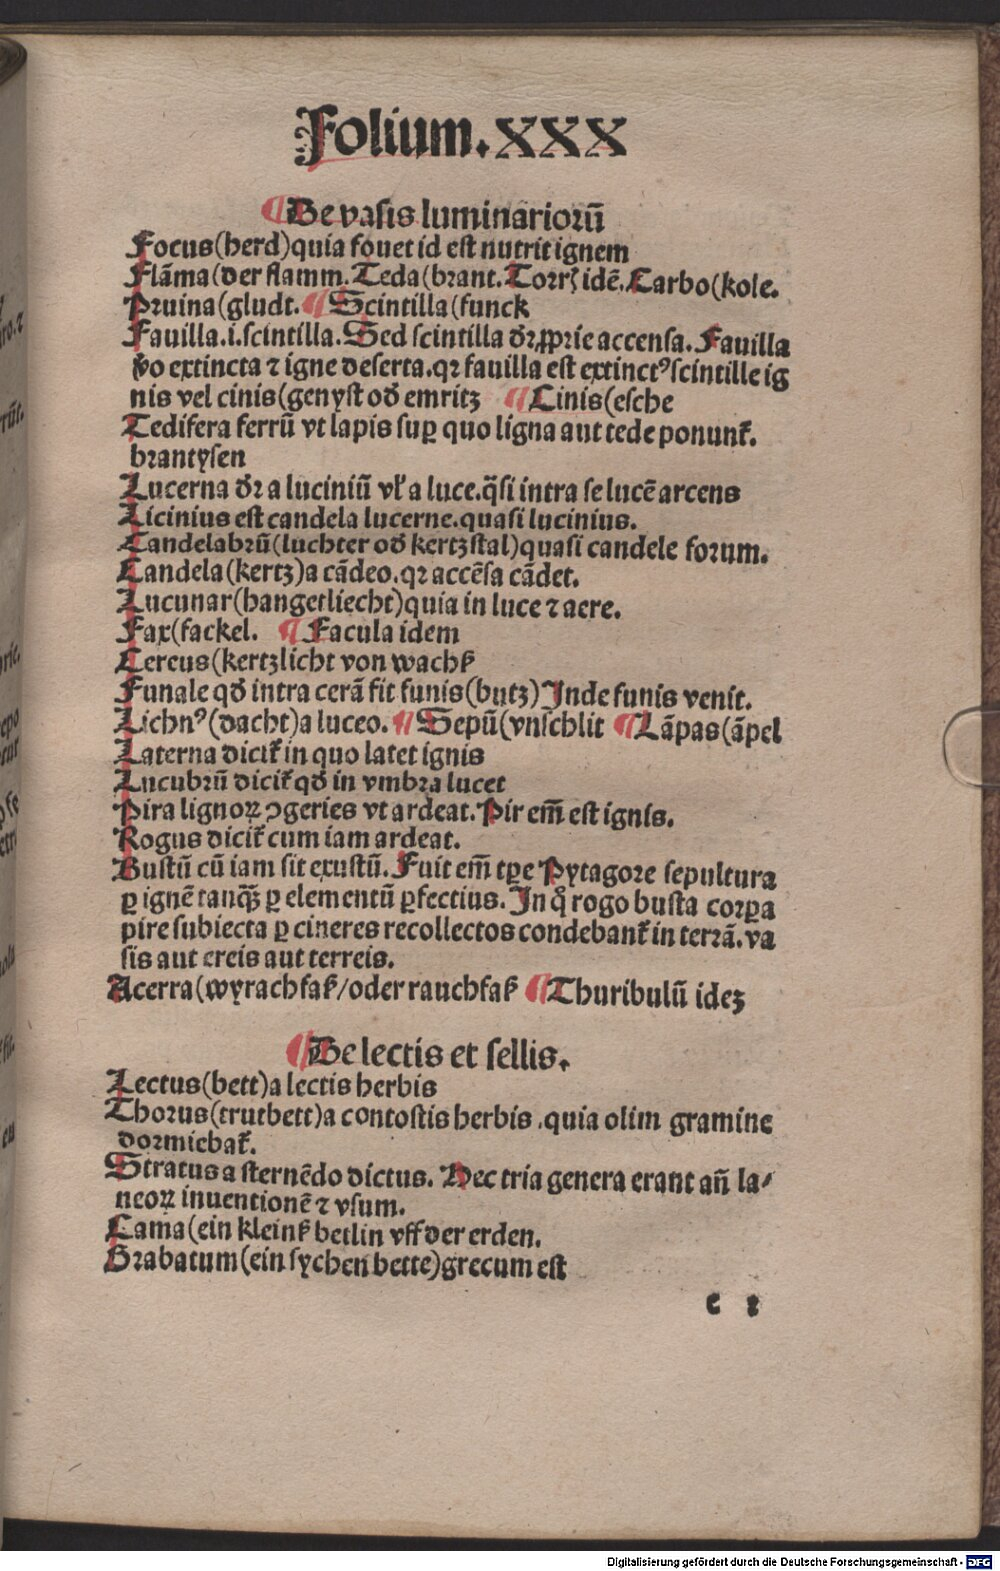 Folium.XXX
¶De vasis luminariorū
Focus(herd)quia fouet id est nutrit ignem
Flāma(der flamm. Teda(brant. Torrꝭ idē. Carbo(kole.
Pruina(gludt. ¶Scintilla(funck
Fauilla.i.scintilla. Sed scintilla dr̄ ꝓprie accensa. Fauilla
v̄o extincta ⁊ igne deserta.qꝛ fauilla est extinctꝰ scintille ig
nis vel cinis(genyst od̄ emritz ¶Cinis(esche
Tedifera ferrū vt lapis suꝑ quo ligna aut tede ponunt̃.
brantysen
Lucerna dr̄ a luciniū vl̃ a luce.q̄si intra se lucē arcens
Licinius est candela lucerne.quasi lucinius.
Candelabrū(luchter od̄ kertzstal)quasi candele forum.
Candela(kertz)a cādeo.qꝛ accēsa cādet.
Lucunar(hangetliecht)quia in luce ⁊ aere.
Fax(fackel. ¶Facula idem
Cereus(kertzlicht von wachß
Funale qd̄ intra cerā fit funis(butz)Inde funis venit.
Lichnꝰ(dacht)a luceo. ¶Sepū(vnschlit ¶Lāpas(āpel
Laterna dicit̃ in quo latet ignis
Lucubrū dicit̃ qd̄ in vmbra lucet
Pira lignoꝝ ↄgeries vt ardeat. Pir em̄ est ignis.
Rogus dicit̃ cum iam ardeat.
Bustū cū iam sit exustū. Fuit em̄ tꝑe Pytagore sepultura
ꝑ ignē tanq̄ꝫ ꝑ elementū ꝑfectius. In q̊ rogo busta corꝑa
pire subiecta ꝑ cineres recollectos condebant̃ in terrā.va
sis aut ereis aut terreis.
Acerra(wyrachfaß/oder rauchfaß ¶Thuribulū idez
¶De lectis et sellis.
Lectus(bett)a lectis herbis
Thorus(trutbett)a contostis herbis.quia olim gramine
dormiebat̃.
Stratus a sternēdo dictus. Hec tria genera erant an̄ la⸗
neoꝝ inuentionē ⁊ vsum.
Cama(ein kleinß betlin vff der erden.
Grabatum(ein sychen bette)grecum est
Digitalisierung gefördert durch die Deutsche Forschungsgemeinschaft - DFG